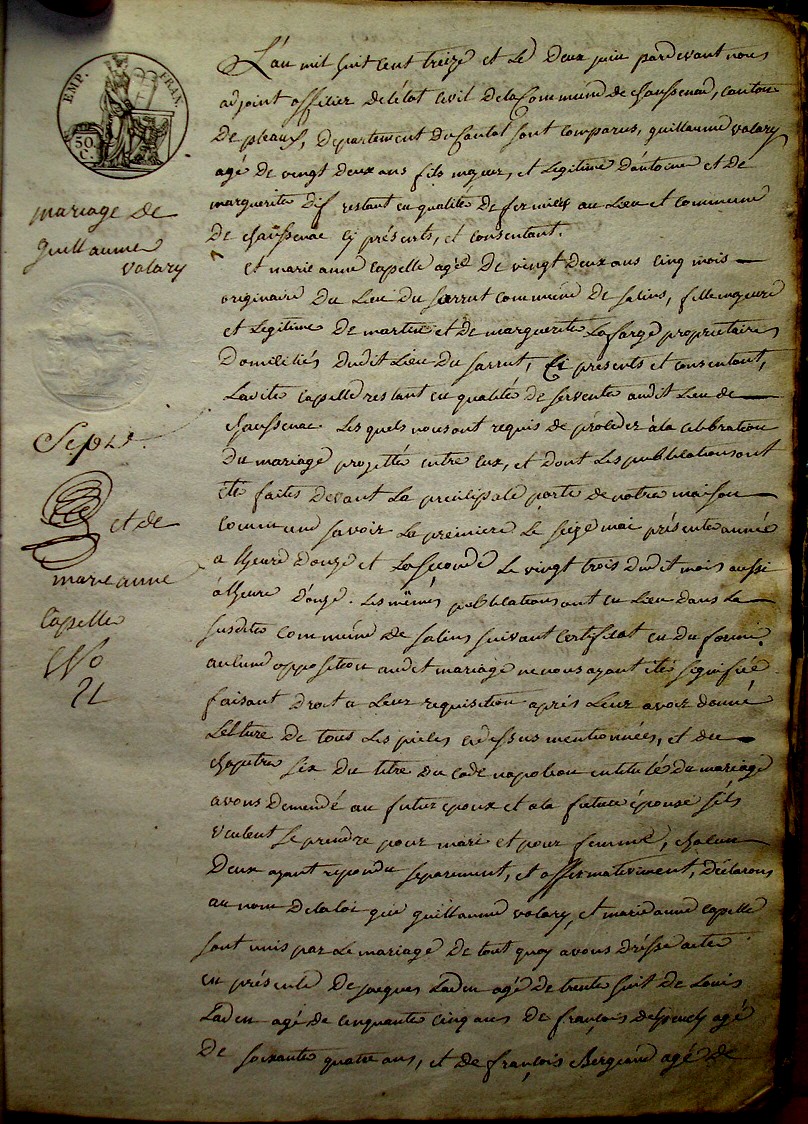 EMP. FRAN.
50 C.
mariage de
Guillaume
valary
Sept
et de
marie anne
Capelle
No
L'an mil huit cent treize et le deux juin pardevant nous
adjoint officier deletat civil delacommune de chaussenac, canton
De pleaux, Departement du Cantal sont comparus, guillaume valary
agé de vingt deux ans fils majeur, et legitime d'antoine et de
marguerite restant en qualité de fermiers au Lieu et commune
de chaussenac ci présents, et consentant.
et marie anne Capelle agée De vingt deux ans cinq mois
originaire Du Lieu Du sarrut commune de salins, fille majeure
et Legitime De martin et de marguerite Lafarge proprietaires
Domiciliés dudit Lieu Du sarrut, ci présents et consentant,
Ladite Capelle restant en qualité de servente audit Lieu de
chaussenac. Les quels nous ont requis de proceder à la celebration
Du mariage projetté entre eux, et dont Les publications ont
été faites devant La principale porte de notre maison
commune savoir La premiere Le seize mai présente année
a lheure d'onze et La seconde Le vingt trois dudit mois aussi
à lheure d'onze. Les mêmes publications ont eu Lieu dans La
susdite commune de salins suivant certificat en du forain.
aucune opposition audit mariage ne nous ayant été signifiée
faisant droit a Leur requisition après Leur avoir donné
Lecture de tous Les pieces cidessus mentionnées, et du
chapitre six du titre du code napoleon intitulé du mariage
avons demendé au futur epoux et ala future épouse s'ils
veulent se prendre pour mari et pour femme, chacun
Deux ayant repondu separement, et affirmativement, Déclarons
au nom delaloi que guillaume valary, et marie anne Capelle
sont unis par Le mariage De tout quoy avons dréssé acte
en présence De jacques Laden agé de trente huit de Louis
Laden agé de cinquante cinq ans De françois agé
De soixante quatre ans, et de françois Bergeaud agé de